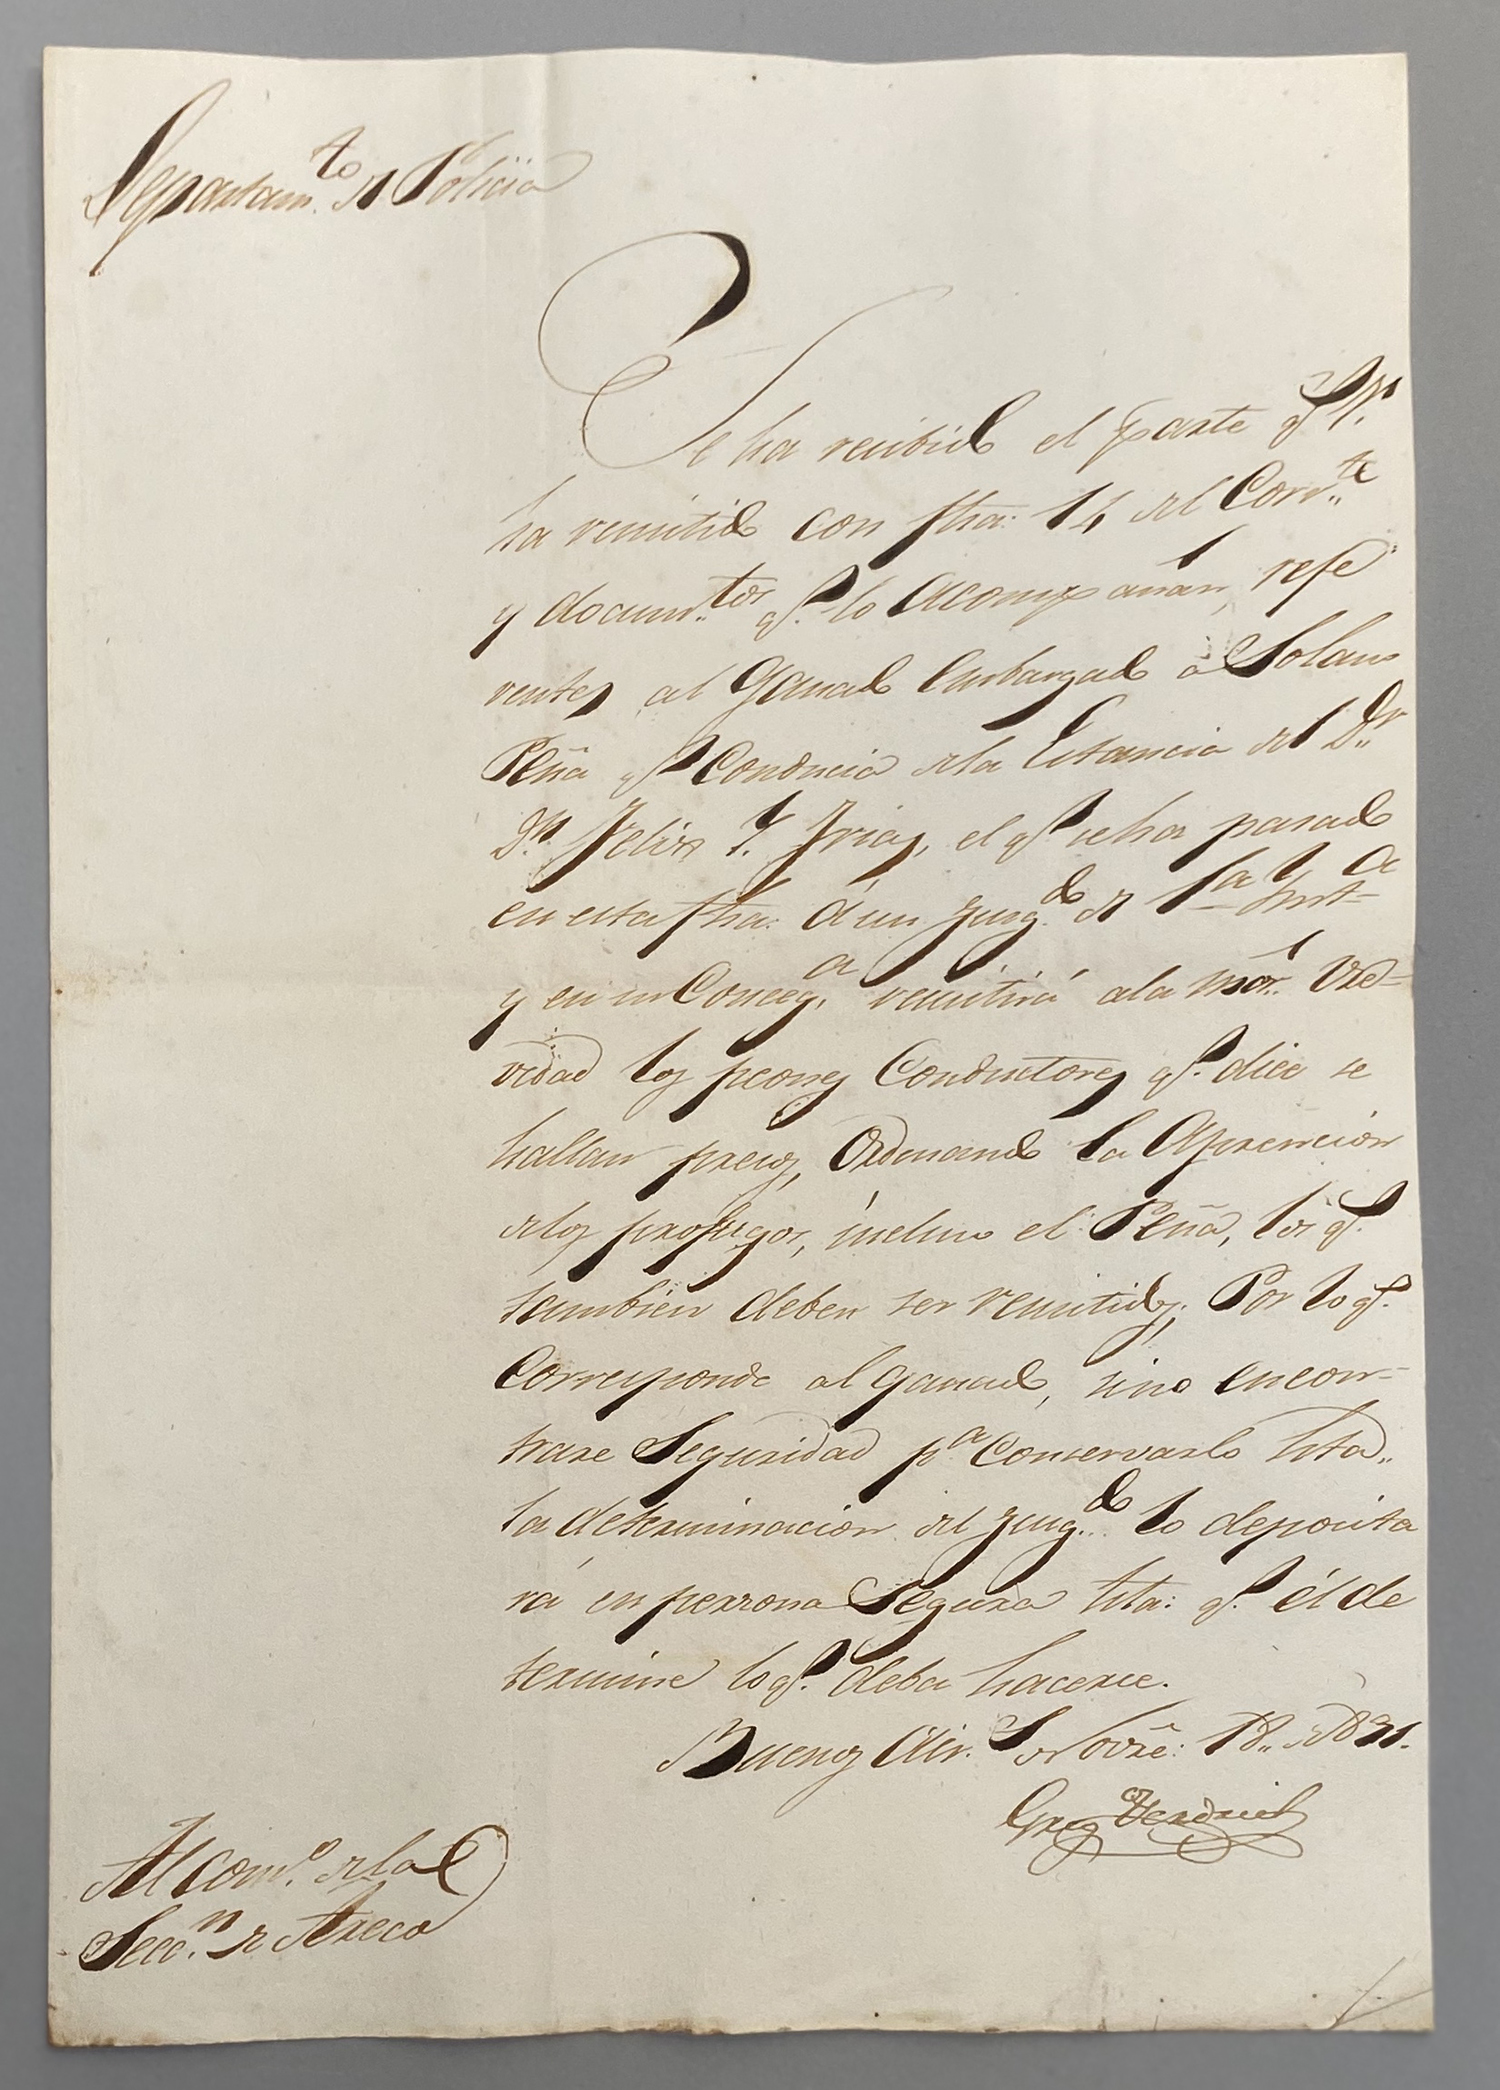 Departam.to de Policia
Se ha recibido el parte q.e V.
ha remitido con fha: 14 del Corr.te
y docum.tos q.e lo acompañan, refe
rentes al Ganado Embargado á Solano
Peña q.e Conducia dela Estancia del D.r
D.n Felix Y. Frias, el q.e seha pasado
en esta fha: á un Juzg.do de 1.a Inst.a
y en su Conseq.a remitirá ala mor. Vre-
vedad los peones Conductores q.e dice se
hallan presos, Ordenando la Aprencion
delos profugos, incluso el Peña, los q.e
tambien deben ser remitidos; Por lo q.e
Corresponde al ganado, sino encon-
trase Seguridad p.a Conservarlo hta..
la determinacion del Juzg.do lo deposita
rá en persona Segura hta: q.e él de
termine lo q.e deba hacerse.
Buenos Air.s Novre: 18.. de 1831.
Al Com.o dela
Secc.n de Areco